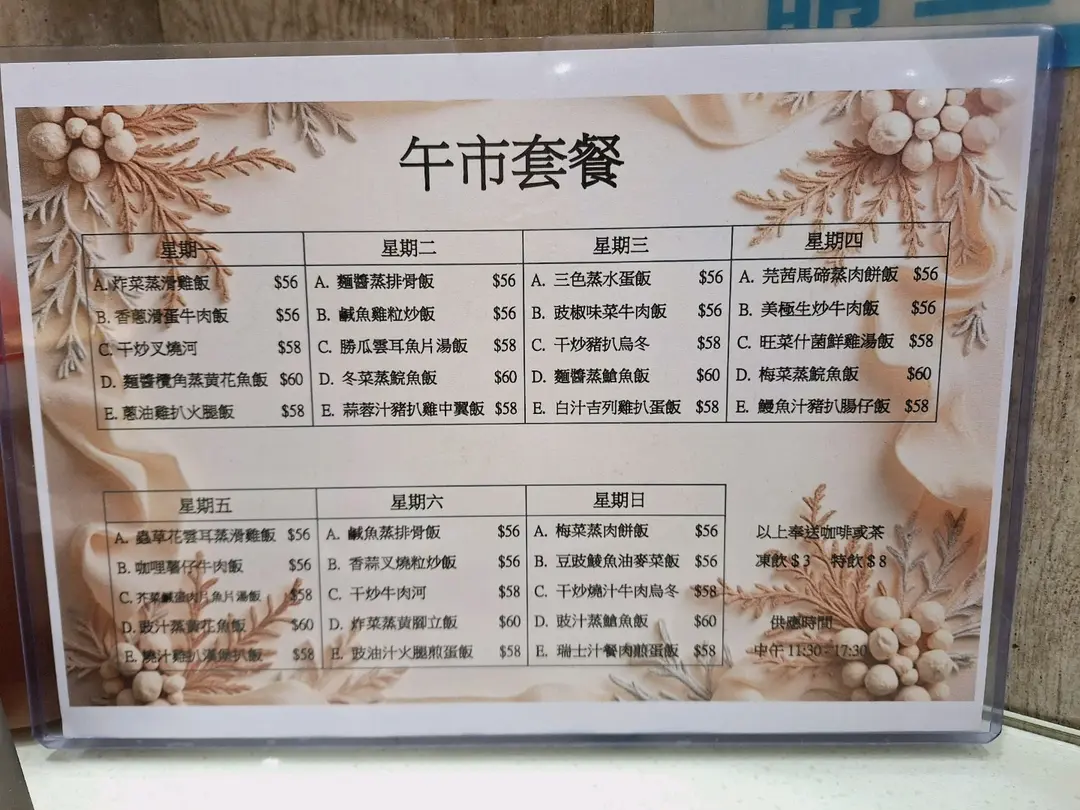 午市套餐
星期一
A. 炸菜蒸滑雞飯 $56
B. 香蔥滑蛋牛肉飯 $56
C. 干炒叉燒河 $58
D. 麵醬欖角蒸黄花魚飯 $60
E. 蔥油雞扒火腿飯 $58
星期二
A. 麵醬蒸排骨飯 $56
B. 鹹魚雞粒炒飯 $56
C. 勝瓜雲耳魚片湯飯 $58
D. 冬菜蒸鯇魚飯 $60
E. 蒜蓉汁豬扒雞中翼飯 $58
星期三
A. 三色蒸水蛋飯 $56
B. 豉椒味菜牛肉飯 $56
C. 干炒豬扒烏冬 $58
D. 麵醬蒸鎗魚飯 $60
E. 白汁吉列雞扒蛋飯 $58
星期四
A. 芫茜馬碲蒸肉餅飯 $56
B. 美極生炒牛肉飯 $56
C. 旺菜什菌鮮雞湯飯 $58
D. 梅菜蒸鯇魚飯 $60
E. 鰻魚汁豬扒腸仔飯 $58
星期五
A. 蟲草花雲耳蒸滑雞飯 $56
B. 咖哩薯仔牛肉飯 $56
C. 芥菜鹹蛋肉片魚片湯飯 $58
D. 豉汁蒸黄花魚飯 $60
E. 燒汁雞扒漢堡扒飯 $58
星期六
A. 鹹魚蒸排骨飯 $56
B. 香蒜叉燒粒炒飯 $56
C. 干炒牛肉河 $58
D. 炸菜蒸黄腳立飯 $60
E. 豉油汁火腿煎蛋飯 $58
星期日
A. 梅菜蒸肉餅飯 $56
B. 豆豉鯪魚油麥菜飯 $56
C. 干炒燒汁牛肉烏冬 $58
D. 豉汁蒸鎗魚飯 $60
E. 瑞士汁餐肉煎蛋飯 $58
以上奉送咖啡或茶
凍飲 $ 3 特飲 $ 8
供應時間
中午 11:30 - 17:30